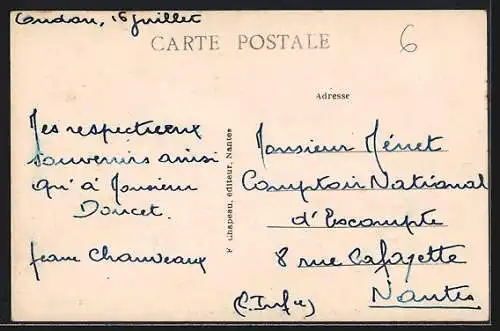 Oudon, 16 juillet
CARTE POSTALE
6
Adresse
Mes respectueux
souvenirs ainsi
qu'à Monsieur
Doucet.
Jeanne Chauveaux
F. Chapeau, éditeur, Nantes
Monsieur Ménet
Comptoir National
d'Escompte
8 rue Lafayette
Nantes
(L. Infre)